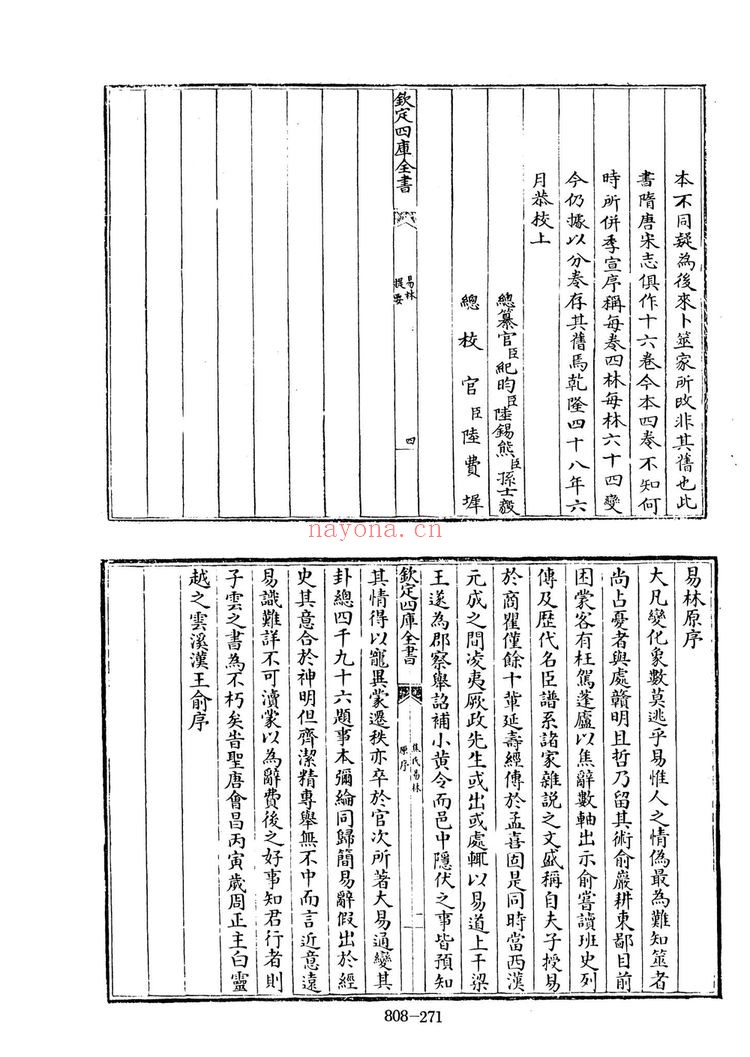 本不同疑為後來卜筮家所改非其舊也此
書隋唐宋志俱作十六卷今本四卷不知何
時所併季宣序稱每卷四林每林六十四變
今仍據以分卷存其舊焉乾隆四十八年六
月恭校上
總纂官臣紀昀臣陸錫熊臣孫士毅
總校官臣陸費墀
欽定四庫全書
易林
提要
四
nayona.cn
易林原序
大凡變化象數莫逃乎易惟人之情偽最為難知筮者
尚占憂者與處贛明且哲乃留其術俞巖耕東鄙目前
困蒙客有枉駕蓬廬以焦辭數軸出示俞嘗讀班史列
傳及歷代名臣譜系諸家雜說之文盛稱自夫子授易
於商瞿僅餘十輩延壽經傳於孟喜固是同時當西漢
元成之間凌夷厥政先生或出或處輒以易道上干梁
王遂為郡察舉詔補小黃令而邑中隱伏之事皆預知
欽定四庫全書
焦氏易林
原序
一
其情得以寵異蒙遷秩亦卒於官次所著大易通變其
卦總四千九十六題事本彌綸同歸簡易辭假出於經
史其意合於神明但齊潔精專舉無不中而言近意遠
易識難詳不可瀆蒙以為辭費後之好事知君行者則
子雲之書為不朽矣旹聖唐會昌丙寅歲周正主白靈
越之雲溪漢王俞序
808-271